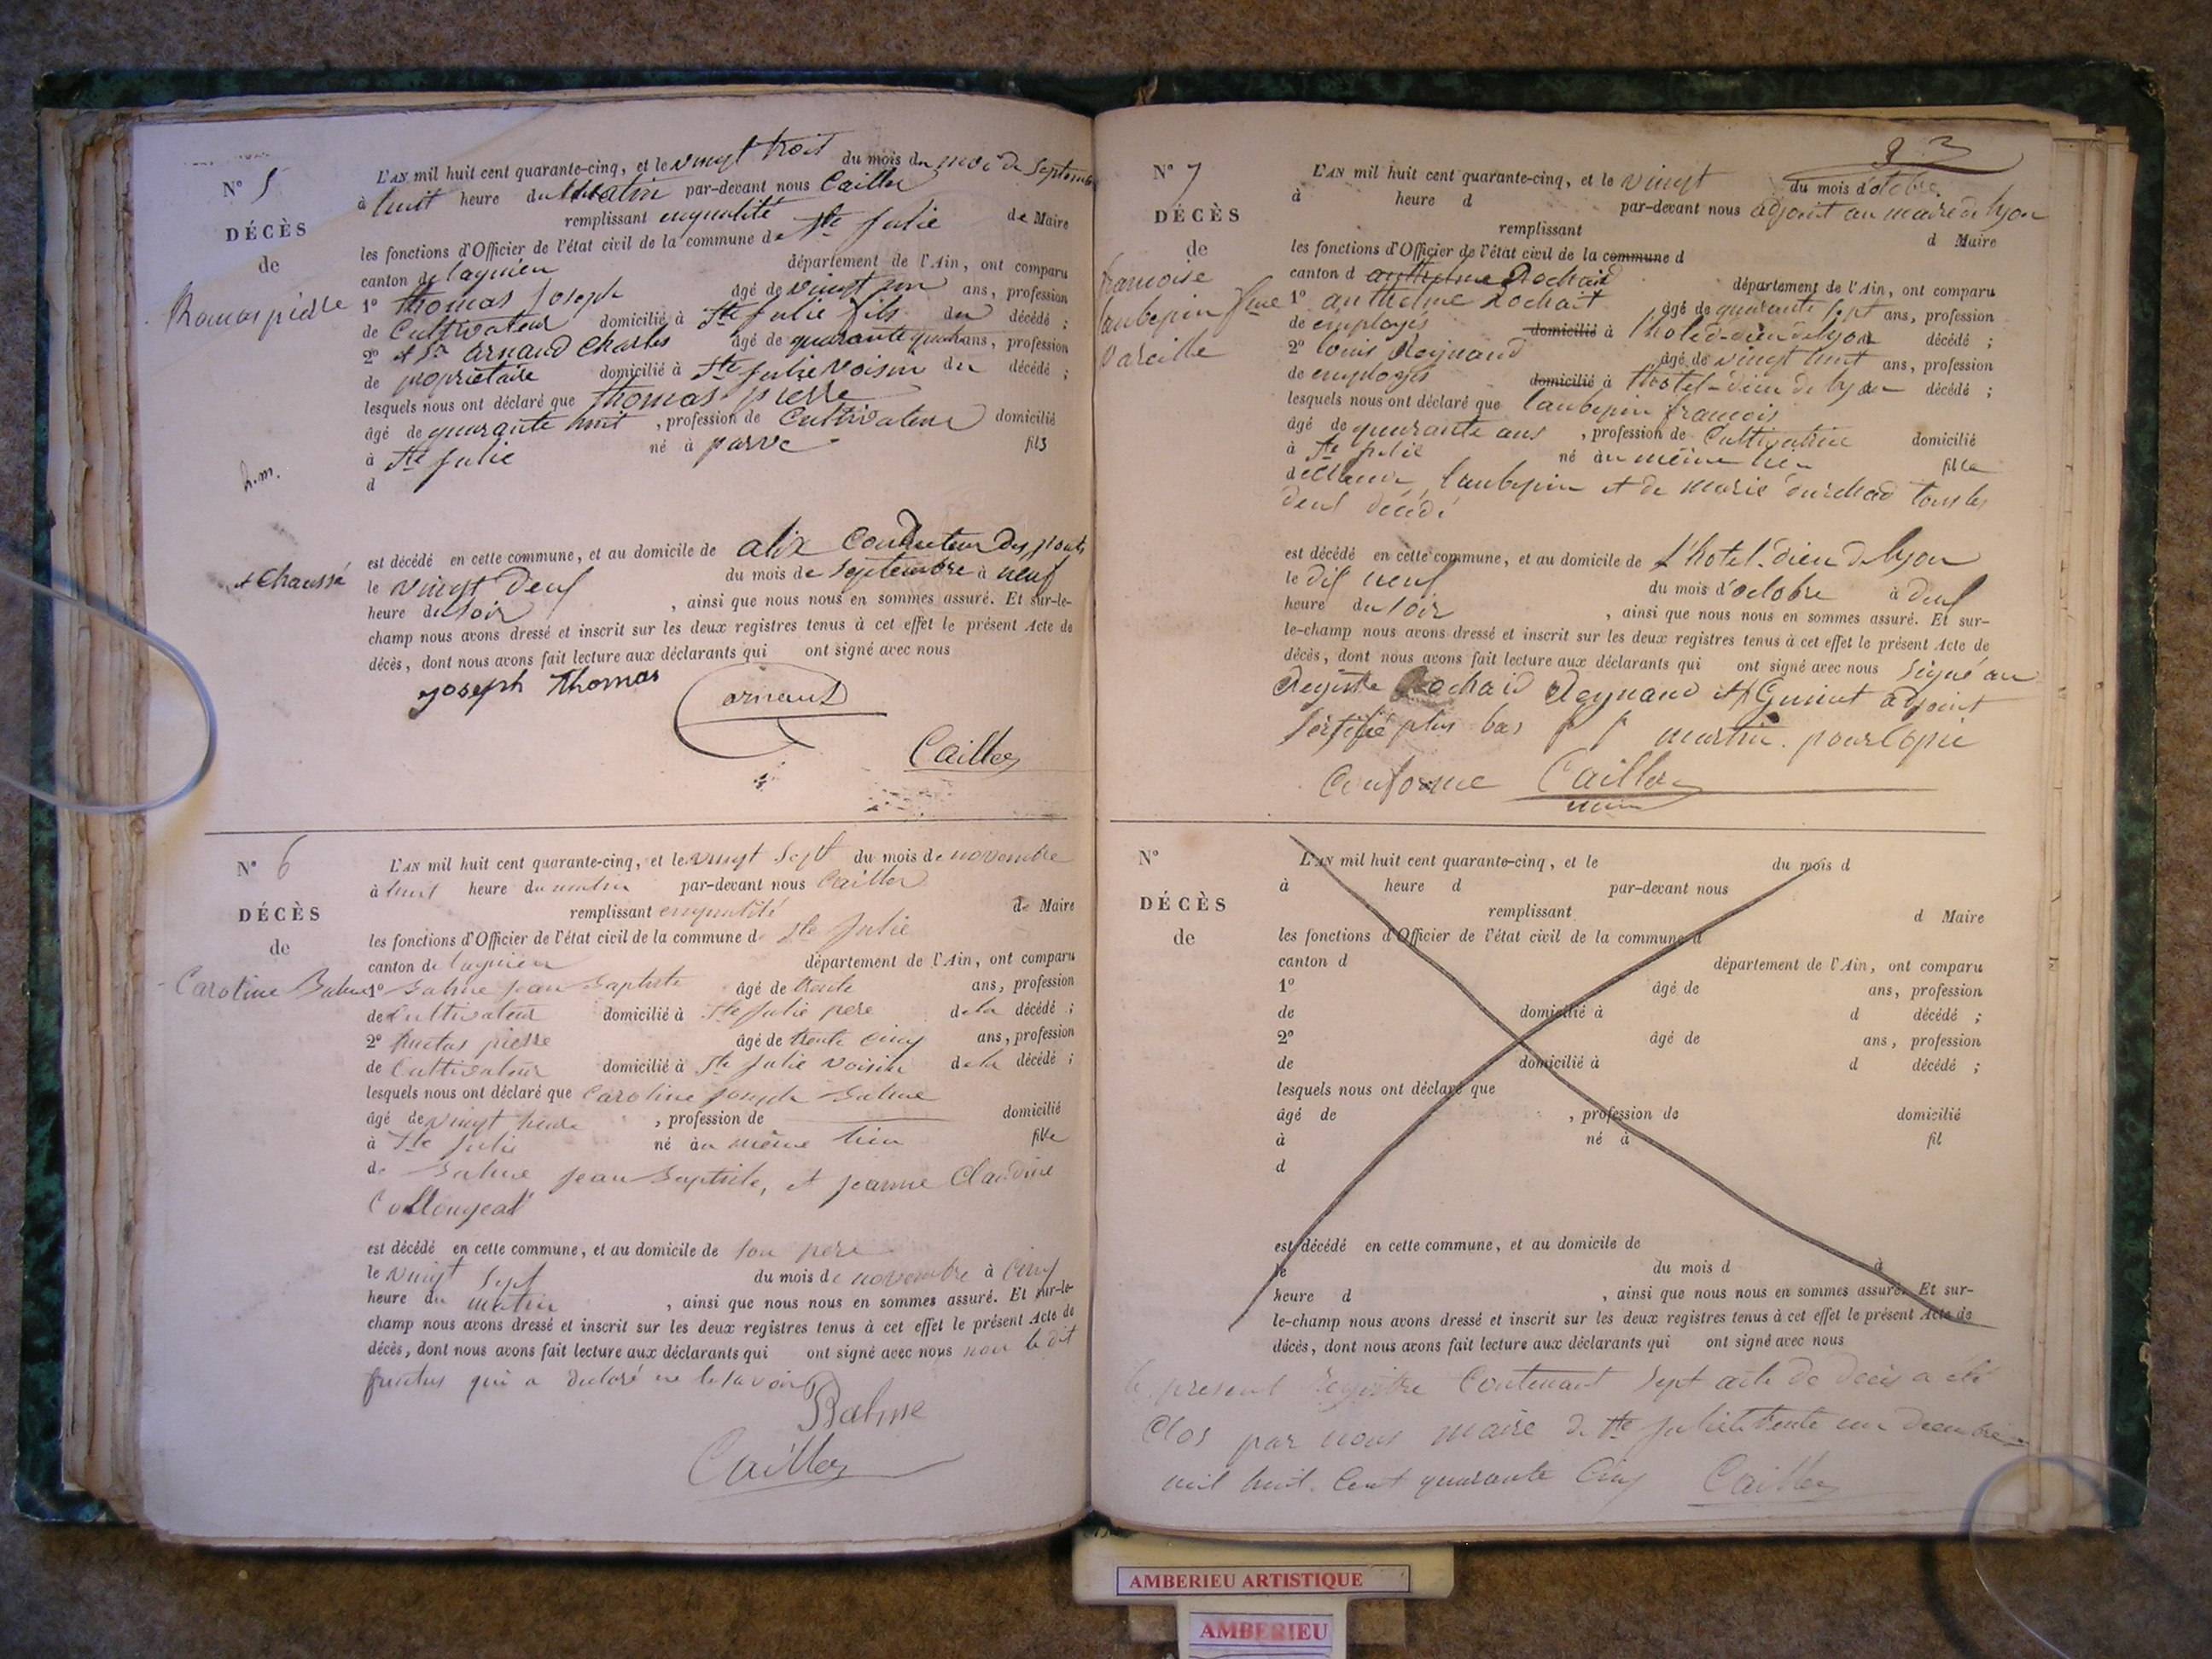 N° 5
DÉCÈS
de
Thomas pierre
L'AN mil huit cent quarante-cinq, et le vingt trois du mois du moi de Septembre
à huit heure du Matin par-devant nous Cailler
remplissant enqualité de Maire
les fonctions d'Officier de l'état civil de la commune de Ste Julie
canton de lagnieu département de l'Ain, ont comparu
1° thomas Joseph âgé de vingt un ans, profession
de Cultivateur domicilié à Ste Julie fils du décédé ;
2° et Sr arnaud Charles âgé de quarante quatre ans, profession
de propriétaire domicilié à Ste Julie voisin du décédé ;
lesquels nous ont déclaré que thomas pierre
âgé de quarante huit , profession de Cultivateur domicilié
à Ste Julie né à parve fils
d
est décédé en cette commune, et au domicile de alix Conducteur des ponts
et Chaussé
le vingt deux du mois de Septembre à neuf
heure du soir , ainsi que nous nous en sommes assuré. Et sur-le-
champ nous avons dressé et inscrit sur les deux registres tenus à cet effet le présent Acte de
décès, dont nous avons fait lecture aux déclarants qui ont signé avec nous
Joseph Thomas
arnaud
Cailler
N° 6
DÉCÈS
de
Caroline Balme
L'AN mil huit cent quarante-cinq, et le vingt Sept du mois de novembre
à huit heure du matin par-devant nous Cailler
remplissant enqualité de Maire
les fonctions d'Officier de l'état civil de la commune d Ste Julie
canton de lagnieu département de l'Ain, ont comparu
1° Balme Jean Baptiste âgé de trente ans, profession
de Cultivateur domicilié à Ste Julie pere de la décédé ;
2° fructus pierre âgé de trente cinq ans, profession
de Cultivateur domicilié à Ste Julie voisin de la décédé ;
lesquels nous ont déclaré que Caroline Joseph Balme
âgé de vingt , profession de domicilié
à Ste Julie né au même lieu fille
de Balme Jean Baptiste, et jeanne Claudine
Collongeat
est décédé en cette commune, et au domicile de son pere
le vingt Sept du mois de novembre à cinq
heure du matin , ainsi que nous nous en sommes assuré. Et sur-le-
champ nous avons dressé et inscrit sur les deux registres tenus à cet effet le présent Acte de
décès, dont nous avons fait lecture aux déclarants qui ont signé avec nous non le dit
fructus qui a declaré ne le savoir
Balme
Cailler
N° 7
DÉCÈS
de
francoise
laubepin fme
vareille
L'AN mil huit cent quarante-cinq, et le vingt du mois d'octobre
à heure d par-devant nous adjoint au maire de lyon
remplissant d Maire
les fonctions d'Officier de l'état civil de la commune d
canton d anthelme Rochaid département de l'Ain, ont comparu
1° anthelme Rochait âgé de quarante sept ans, profession
de employés domicilié à l'hotel-dieu de lyon décédé ;
2° louis Reynaud âgé de vingt huit ans, profession
de employés domicilié à l'hotel-dieu de lyon décédé ;
lesquels nous ont déclaré que laubepin françois
âgé de quarante ans , profession de Cultivatrice domicilié
à Ste Julie né au même lieu fille
laubepin et de marie tous les
deux décédé
est décédé en cette commune, et au domicile de l'hotel-dieu de lyon
le dix neuf du mois d'octobre à deux
heure du soir , ainsi que nous nous en sommes assuré. Et sur-
le-champ nous avons dressé et inscrit sur les deux registres tenus à cet effet le présent Acte de
décès, dont nous avons fait lecture aux déclarants qui ont signé avec nous signé au
Registre Rochaid Reynaud et adjoint
plus bas martin. pour Copie
Conforme Cailler
N°
DÉCÈS
de
L'AN mil huit cent quarante-cinq, et le du mois d
à heure d par-devant nous
remplissant d Maire
les fonctions d'Officier de l'état civil de la commune d
canton d département de l'Ain, ont comparu
1° âgé de ans, profession
de domicilié à d décédé ;
2° âgé de ans, profession
de domicilié à d décédé ;
lesquels nous ont déclaré que
âgé de , profession de domicilié
à né à fil
d
est décédé en cette commune, et au domicile de
le du mois d à
heure d , ainsi que nous nous en sommes assuré. Et sur-
le-champ nous avons dressé et inscrit sur les deux registres tenus à cet effet le présent Acte de
décès, dont nous avons fait lecture aux déclarants qui ont signé avec nous
le present registre Contenant Sept acte de décès a été
Clos par nous maire de Ste Julie le trente un decembre
mil huit Cent quarante Cinq Cailler
AMBERIEU ARTISTIQUE
AMBERIEU